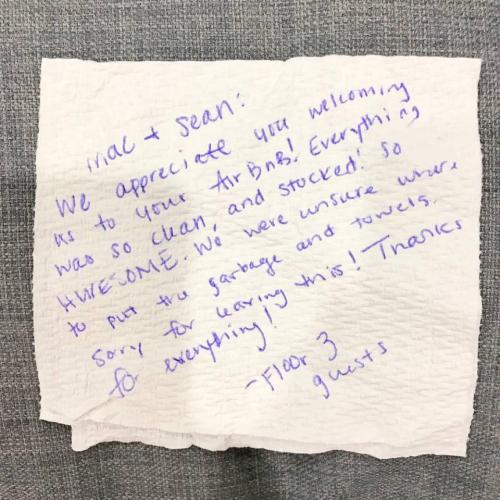 Mac + Sean:
We appreciate you welcoming
us to your AirBnB! Everything
was so clean, and stocked! So
AWESOME. We were unsure where
to put the garbage and towels.
Sorry for leaving this! Thanks
for everything!
- Floor 3
guests